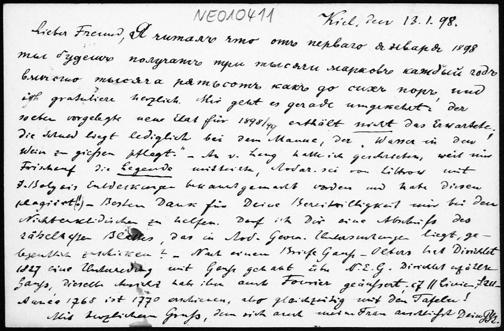 NEO10411
Kiel, den 13.1.98.
Lieber Freund, Я читалъ что отъ перваго января 1898
ты будешь получать три тысячи марковъ каждый годъ
вмѣсто тысяча пятьсотъ какъ до сихъ поръ, und
ich gratuliere herzlich. Mir geht es gerade umgekehrt: der
neben vorgelegte neue Etat für 1898/99 enthält nicht das Erwartete,
die Schuld liegt lediglich bei dem Manne, der "Wasser in den
Wein zu gießen pflegt." – An v. hatte ich geschrieben, weil mir
Frischauf die Legende mitteilte, Lobac. sei von Littrow mit
J. Bolyais Entdeckungen bekannt gemacht worden und habe diesen
plagiirt! – Besten Dank für Deine Bereitwilligkeit mir bei den
Nichteuklidischen zu helfen. Darf ich Dir eine Abschrift des
räthselhaften Blattes, das in Untersuchungen liegt, gelegentlich
schicken? – Nach einem Briefe Gauß-Olbers hat Dirichlet
1827 eine Unterredung mit Gauß gehabt über N.E.G. Dirichlet erzählte
Gauß, dieselbe habe ihm auch Fourier geäußert,
Année 1768 ist 1770 erschienen, also gleichzeitig mit den Tafeln!
Mit herzlichem Gruß, den sich auch meine Frau anschließt Dein